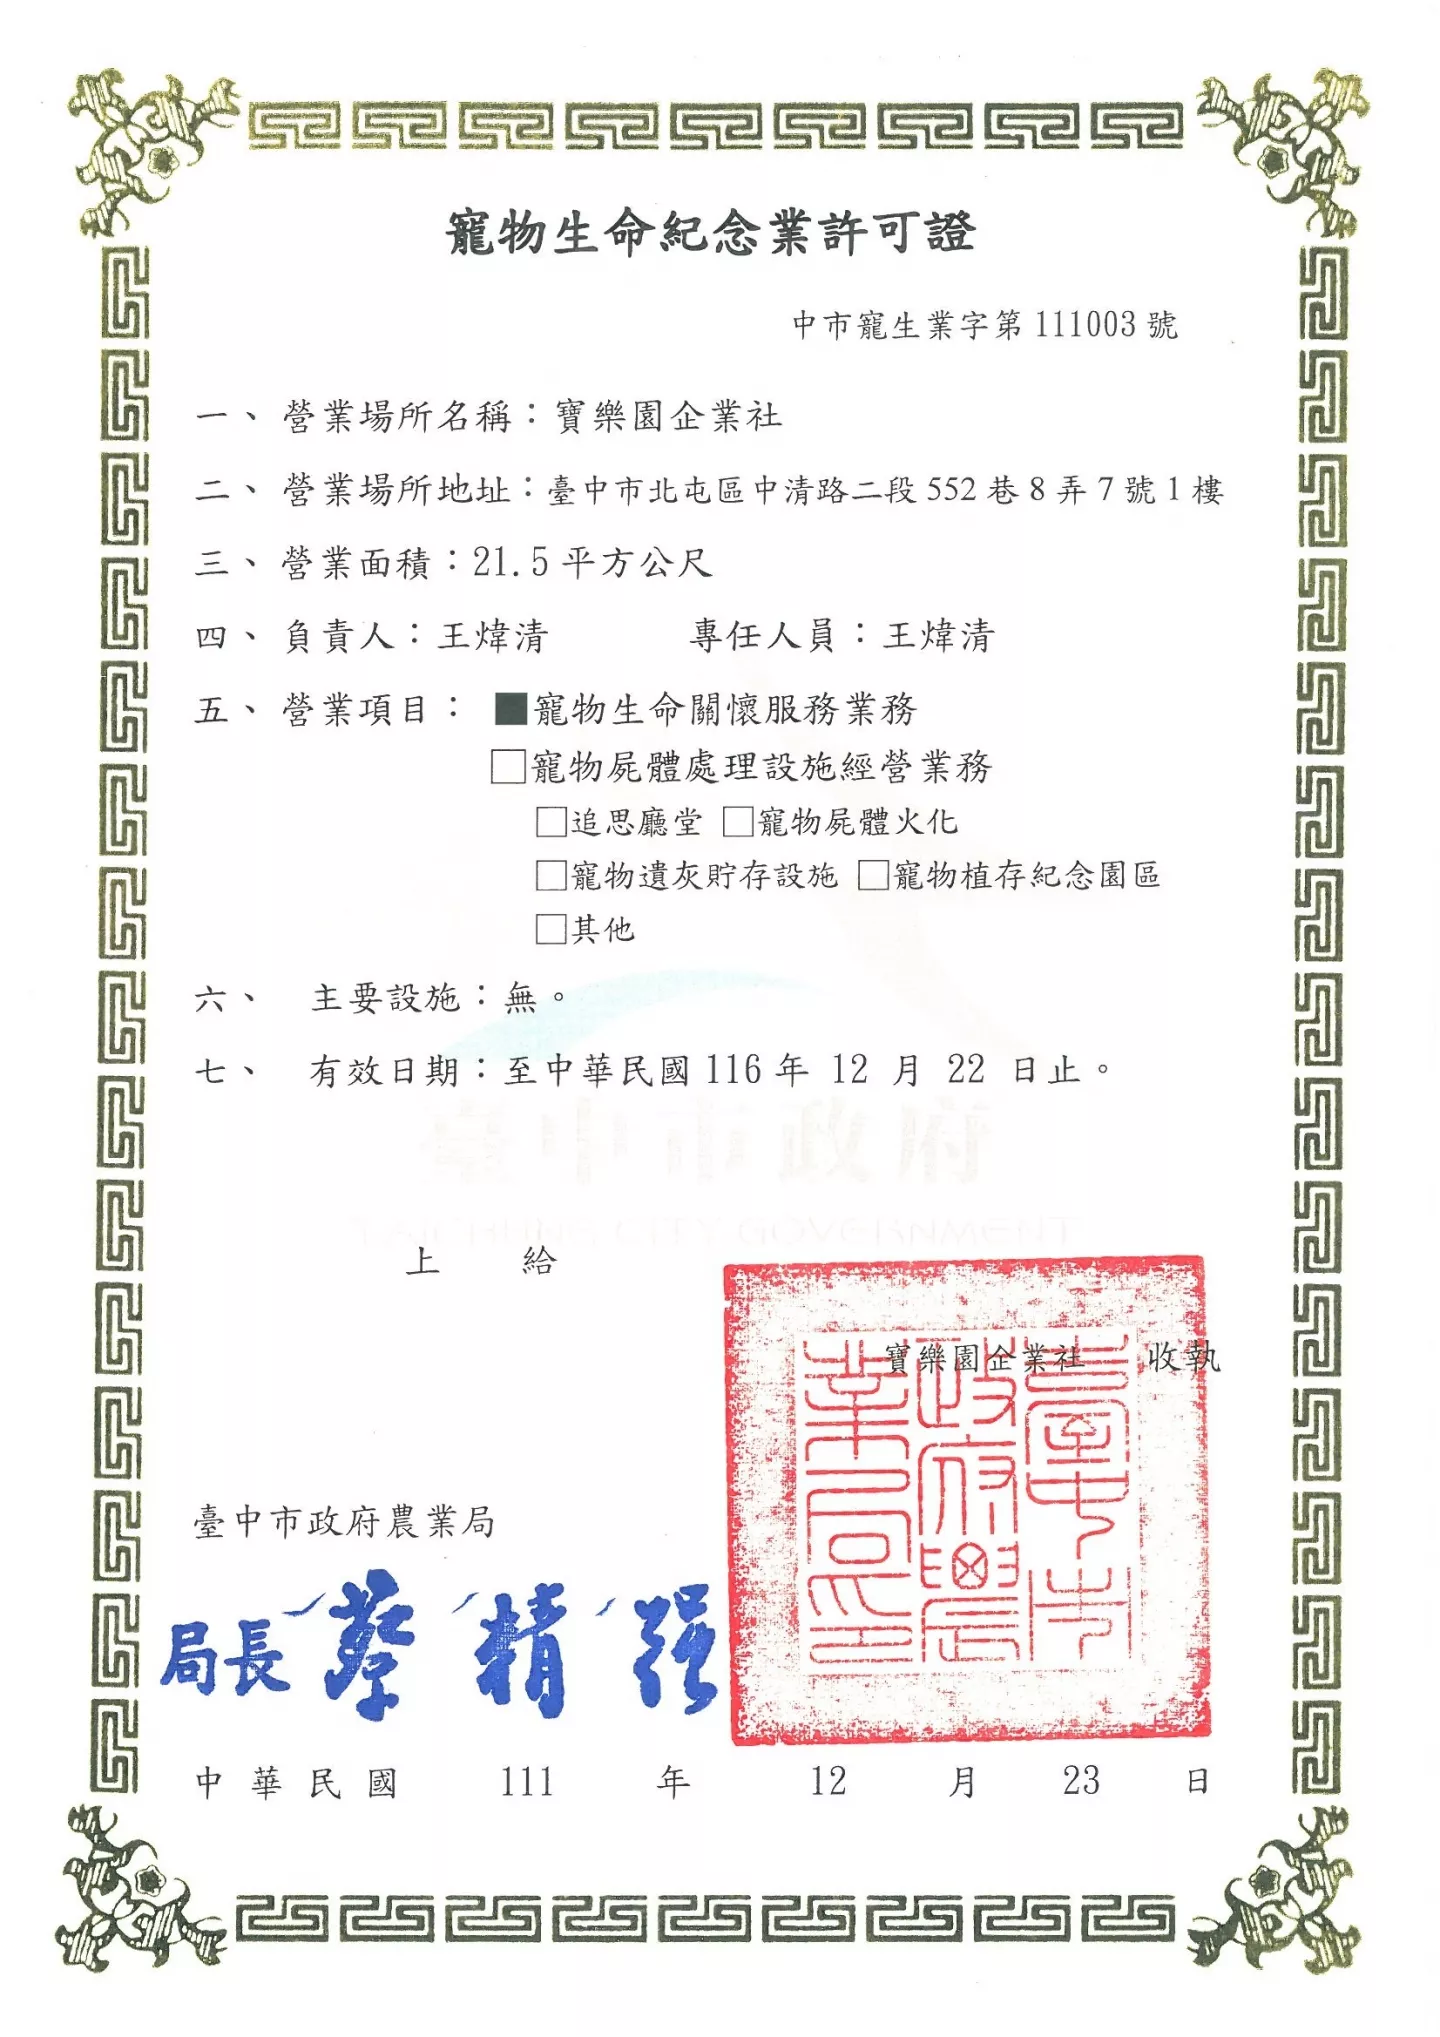 寵物生命紀念業許可證
中市寵生業字第 111003 號
一、營業場所名稱：寶樂園企業社
二、營業場所地址：臺中市北屯區中清路二段 552 巷 8 弄 7 號 1 樓
三、營業面積：21.5 平方公尺
四、負責人：王煒清 專任人員：王煒清
五、營業項目： ■寵物生命關懷服務業務
□寵物屍體處理設施經營業務
□追思廳堂 □寵物屍體火化
□寵物遺灰貯存設施 □寵物植存紀念園區
□其他
六、 主要設施：無。
七、 有效日期：至中華民國 116 年 12 月 22 日止。
臺中市政府
TAICHUNG CITY GOVERNMENT
上 給
寶樂園企業社 收執
臺中市政府農業局印
臺中市政府農業局
局長 蔡精強
中華民國 111 年 12 月 23 日